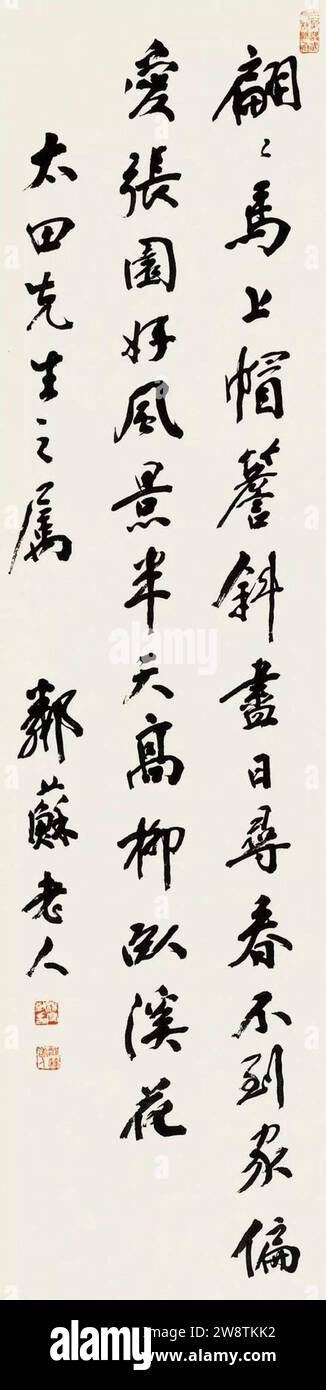 翩〻馬上帽簷斜盡日尋春不到家偏
愛張園好風景半天高柳臥溪花
太田先生之属
鄰蘇老人
alamy
Image ID: 2W8TKK2
www.alamy.com